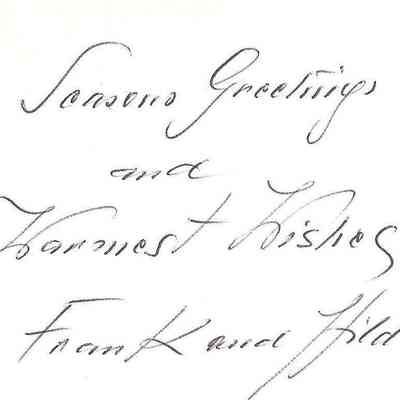 Seasons Greetings
and
Warmest Wishes
Frank and Hild